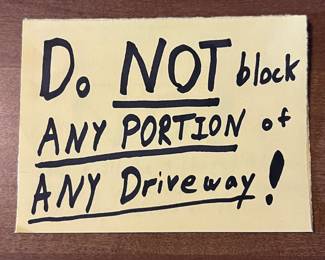 Do NOT block
ANY PORTION of
ANY Driveway!